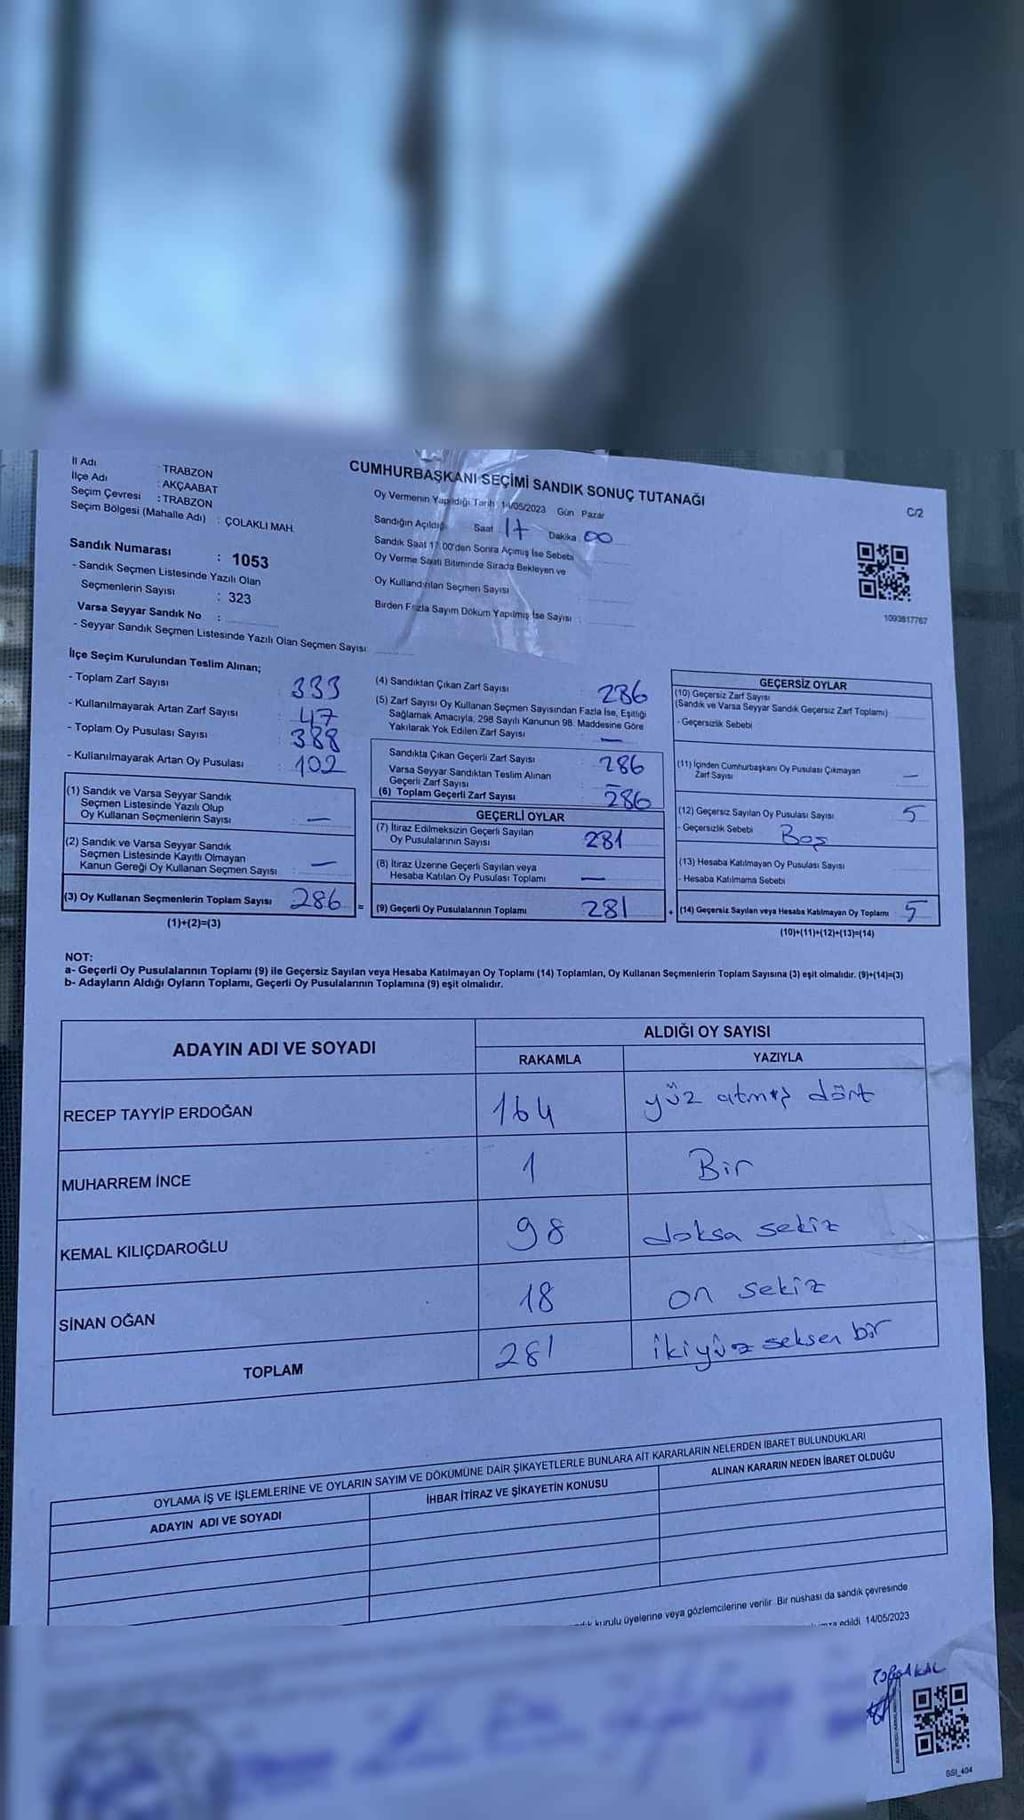 İl Adı : TRABZON
İlçe Adı : AKÇAABAT
Seçim Çevresi : TRABZON
Seçim Bölgesi (Mahalle Adı) : ÇOLAKLI MAH.
CUMHURBAŞKANI SEÇİMİ SANDIK SONUÇ TUTANAĞI
C/2
Oy Vermenin Yapıldığı Tarih 14/05/2023 Gün Pazar
Sandığın Açıldığı Saat 17 Dakika 00
Sandık Saat 17:00'den Sonra Açılmış İse Sebebi
Oy Verme Saati Bitiminde Sırada Bekleyen ve
Oy Kullandırılan Seçmen Sayısı
Birden Fazla Sayım Döküm Yapılmış İse Sayısı :
1093817767
Sandık Numarası : 1053
- Sandık Seçmen Listesinde Yazılı Olan
Seçmenlerin Sayısı : 323
Varsa Seyyar Sandık No :
- Seyyar Sandık Seçmen Listesinde Yazılı Olan Seçmen Sayısı
İlçe Seçim Kurulundan Teslim Alınan;
- Toplam Zarf Sayısı : 333
- Kullanılmayarak Artan Zarf Sayısı : 47
- Toplam Oy Pusulası Sayısı : 388
- Kullanılmayarak Artan Oy Pusulası : 102
(1) Sandık ve Varsa Seyyar Sandık
Seçmen Listesinde Yazılı Olup
Oy Kullanan Seçmenlerin Sayısı : —
(2) Sandık ve Varsa Seyyar Sandık
Seçmen Listesinde Kayıtlı Olmayan
Kanun Gereği Oy Kullanan Seçmen Sayısı : —
(3) Oy Kullanan Seçmenlerin Toplam Sayısı 286 =
(1)+(2)=(3)
(4) Sandıktan Çıkan Zarf Sayısı : 286
(5) Zarf Sayısı Oy Kullanan Seçmen Sayısından Fazla İse, Eşitliği
Sağlamak Amacıyla, 298 Sayılı Kanunun 98. Maddesine Göre
Yakılarak Yok Edilen Zarf Sayısı : —
Sandıkta Çıkan Geçerli Zarf Sayısı : 286
Varsa Seyyar Sandıktan Teslim Alınan
Geçerli Zarf Sayısı : —
(6) Toplam Geçerli Zarf Sayısı : 286
GEÇERLİ OYLAR
(7) İtiraz Edilmeksizin Geçerli Sayılan
Oy Pusulalarının Sayısı : 281
(8) İtiraz Üzerine Geçerli Sayılan veya
Hesaba Katılan Oy Pusulası Toplamı : —
(9) Geçerli Oy Pusulalarının Toplamı : 281 +
GEÇERSİZ OYLAR
(10) Geçersiz Zarf Sayısı
(Sandık ve Varsa Seyyar Sandık Geçersiz Zarf Toplamı)
- Geçersizlik Sebebi
(11) İçinden Cumhurbaşkanı Oy Pusulası Çıkmayan
Zarf Sayısı —
(12) Geçersiz Sayılan Oy Pusulası Sayısı 5
- Geçersizlik Sebebi Boş
(13) Hesaba Katılmayan Oy Pusulası Sayısı
- Hesaba Katılmama Sebebi
(14) Geçersiz Sayılan veya Hesaba Katılmayan Oy Toplamı 5
(10)+(11)+(12)+(13)=(14)
NOT:
a- Geçerli Oy Pusulalarının Toplamı (9) ile Geçersiz Sayılan veya Hesaba Katılmayan Oy Toplamı (14) Toplamları, Oy Kullanan Seçmenlerin Toplam Sayısına (3) eşit olmalıdır. (9)+(14)=(3)
b- Adayların Aldığı Oyların Toplamı, Geçerli Oy Pusulalarının Toplamına (9) eşit olmalıdır.
ADAYIN ADI VE SOYADI
ALDIĞI OY SAYISI
RAKAMLA YAZIYLA
RECEP TAYYİP ERDOĞAN 164 yüz atmış dört
MUHARREM İNCE 1 Bir
KEMAL KILIÇDAROĞLU 98 doksa sekiz
SİNAN OĞAN 18 on sekiz
TOPLAM 281 ikiyüz seksen bir
OYLAMA İŞ VE İŞLEMLERİNE VE OYLARIN SAYIM VE DÖKÜMÜNE DAİR ŞİKAYETLERLE BUNLARA AİT KARARLARIN NELERDEN İBARET BULUNDUKLARI
ADAYIN ADI VE SOYADI İHBAR İTİRAZ VE ŞİKAYETİN KONUSU ALINAN KARARIN NEDEN İBARET OLDUĞU
kurulu üyelerine veya gözlemcilerine verilir. Bir nushası da sandık çevresinde
edildi. 14/05/2023
SSI_404